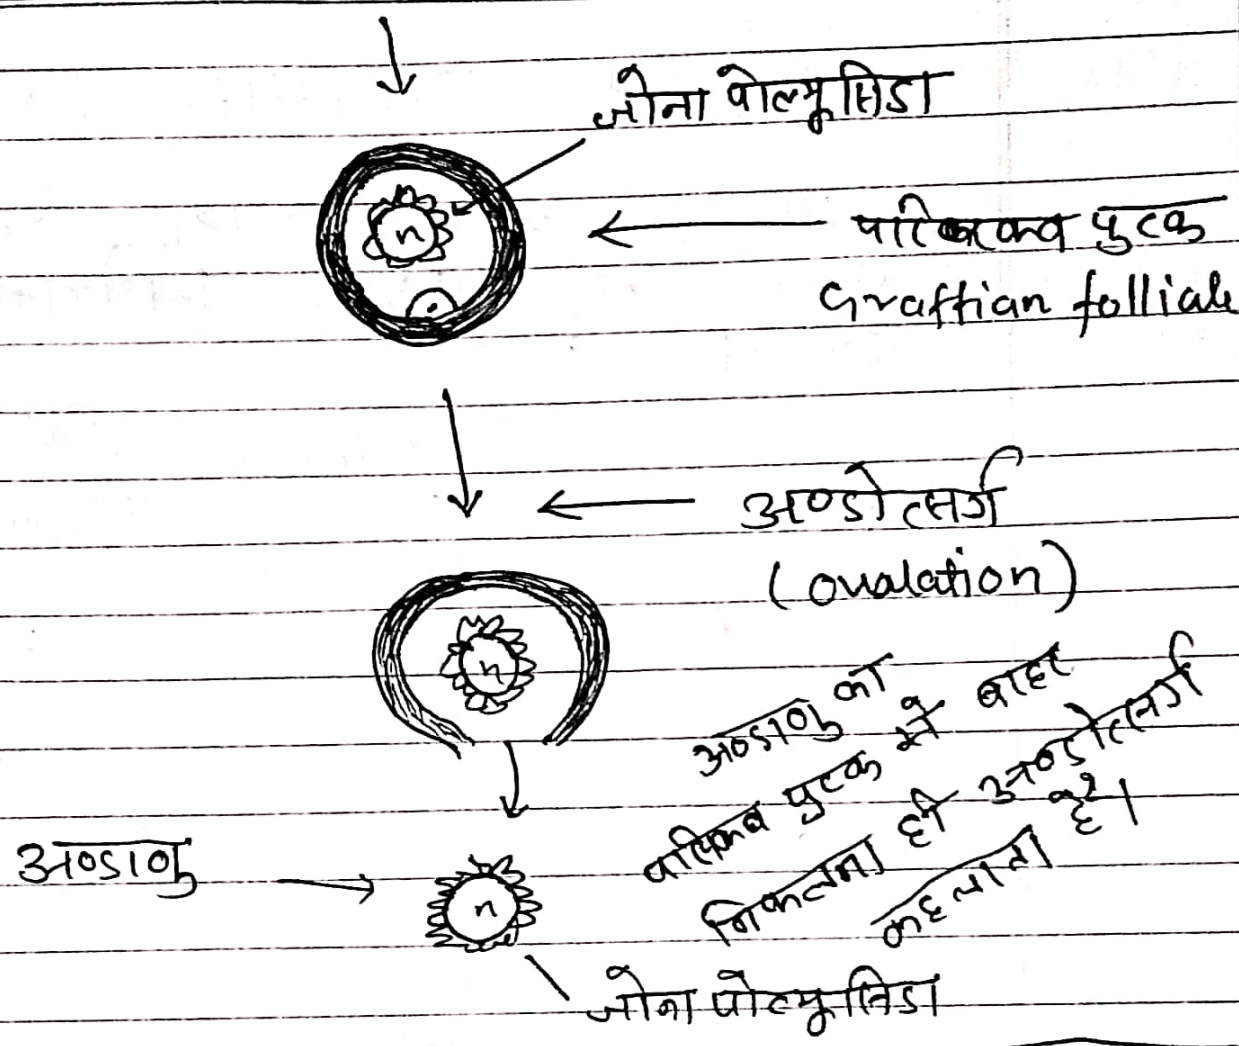 जोना पोल्यूसिडा
n
परिपक्व पुटक
Graftian follicle
अण्डोत्सर्ग
(ovalation)
n
अण्डाणु का
परिपक्व पुटक से बाहर
निकलना ही अण्डोत्सर्ग
कहलाता है।
अण्डाणु
n
जोना पोल्यूसिडा